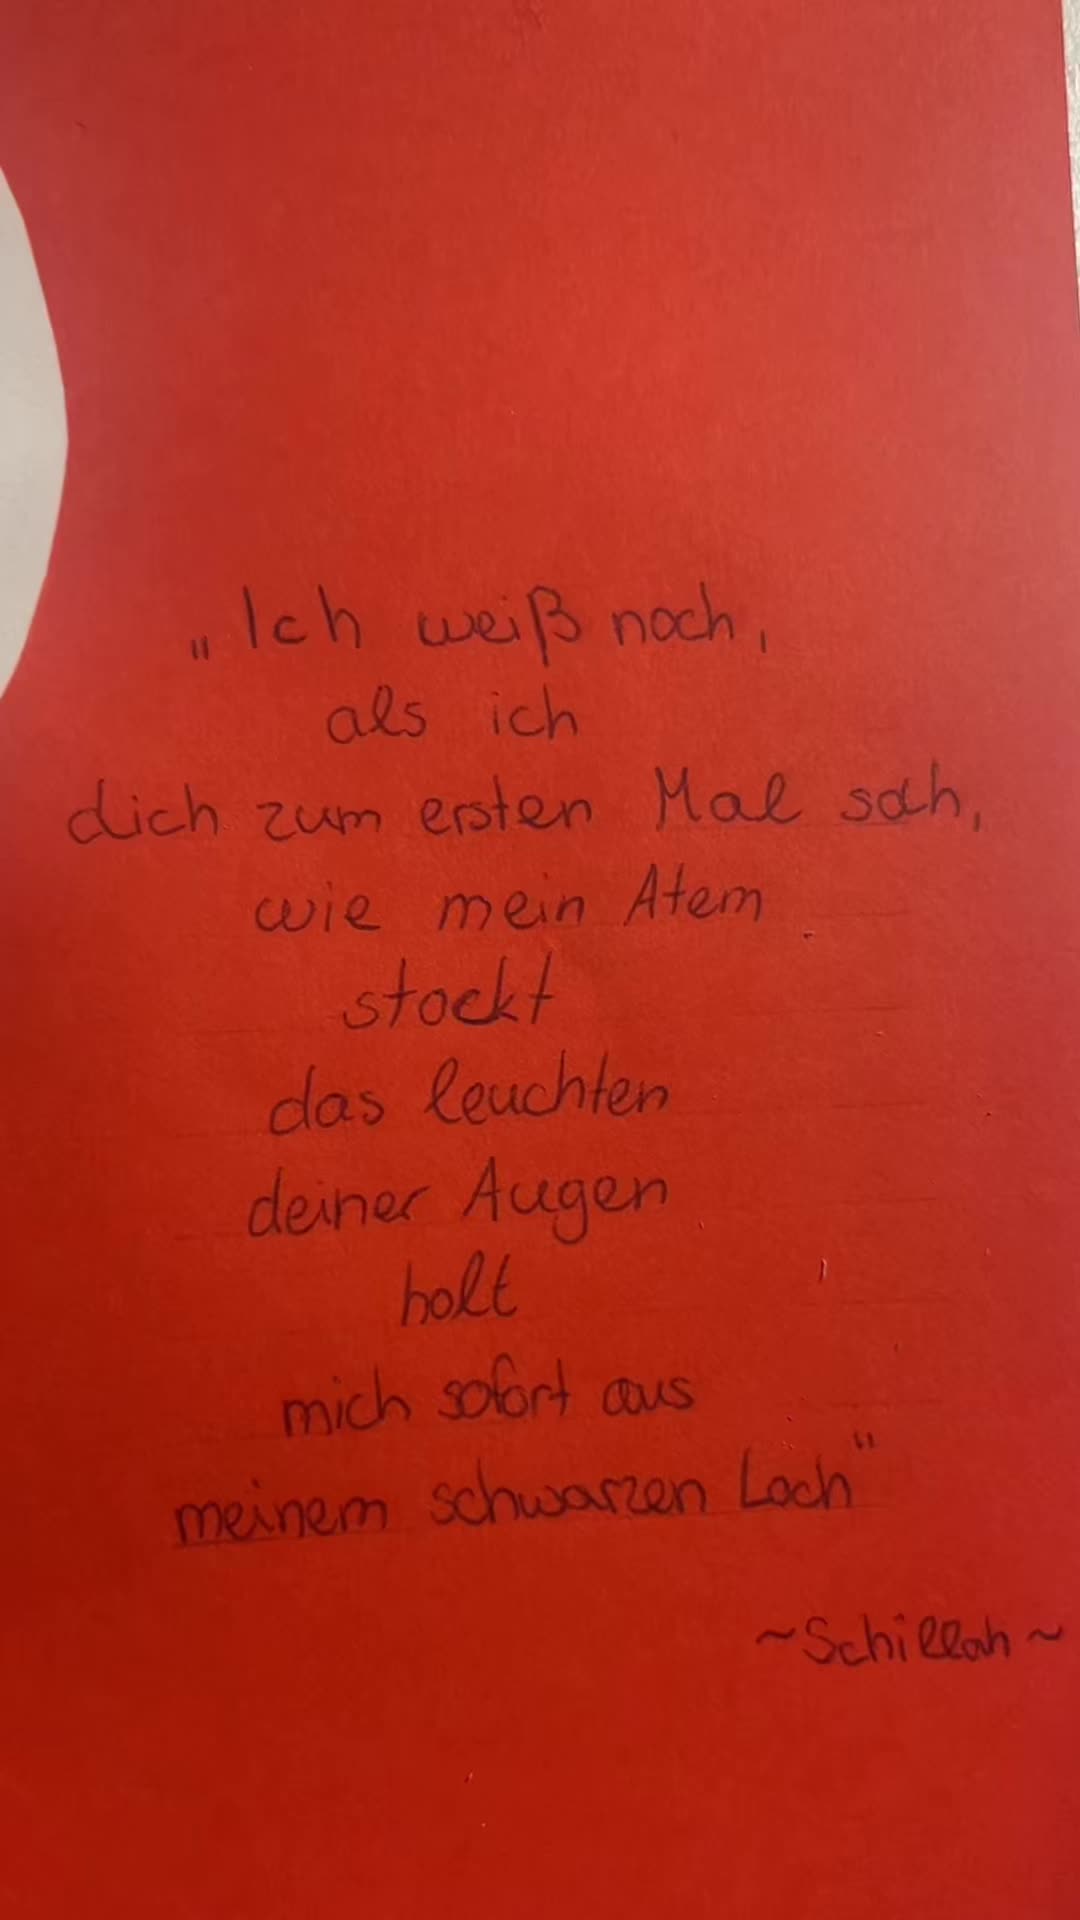 „Ich weiß noch,
als ich
dich zum ersten Mal sah,
wie mein Atem
stockt
das leuchten
deiner Augen
holt
mich sofort aus
meinem schwarzen Loch"
~Schillah~